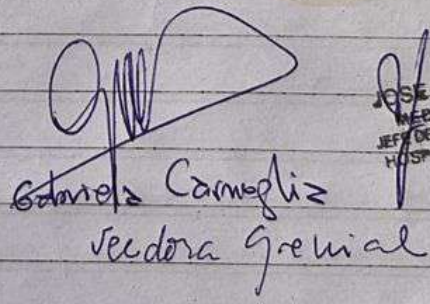 Gabriela Carnaglia
Veedora Gremial
JOSE
JEFE DE
HOSP